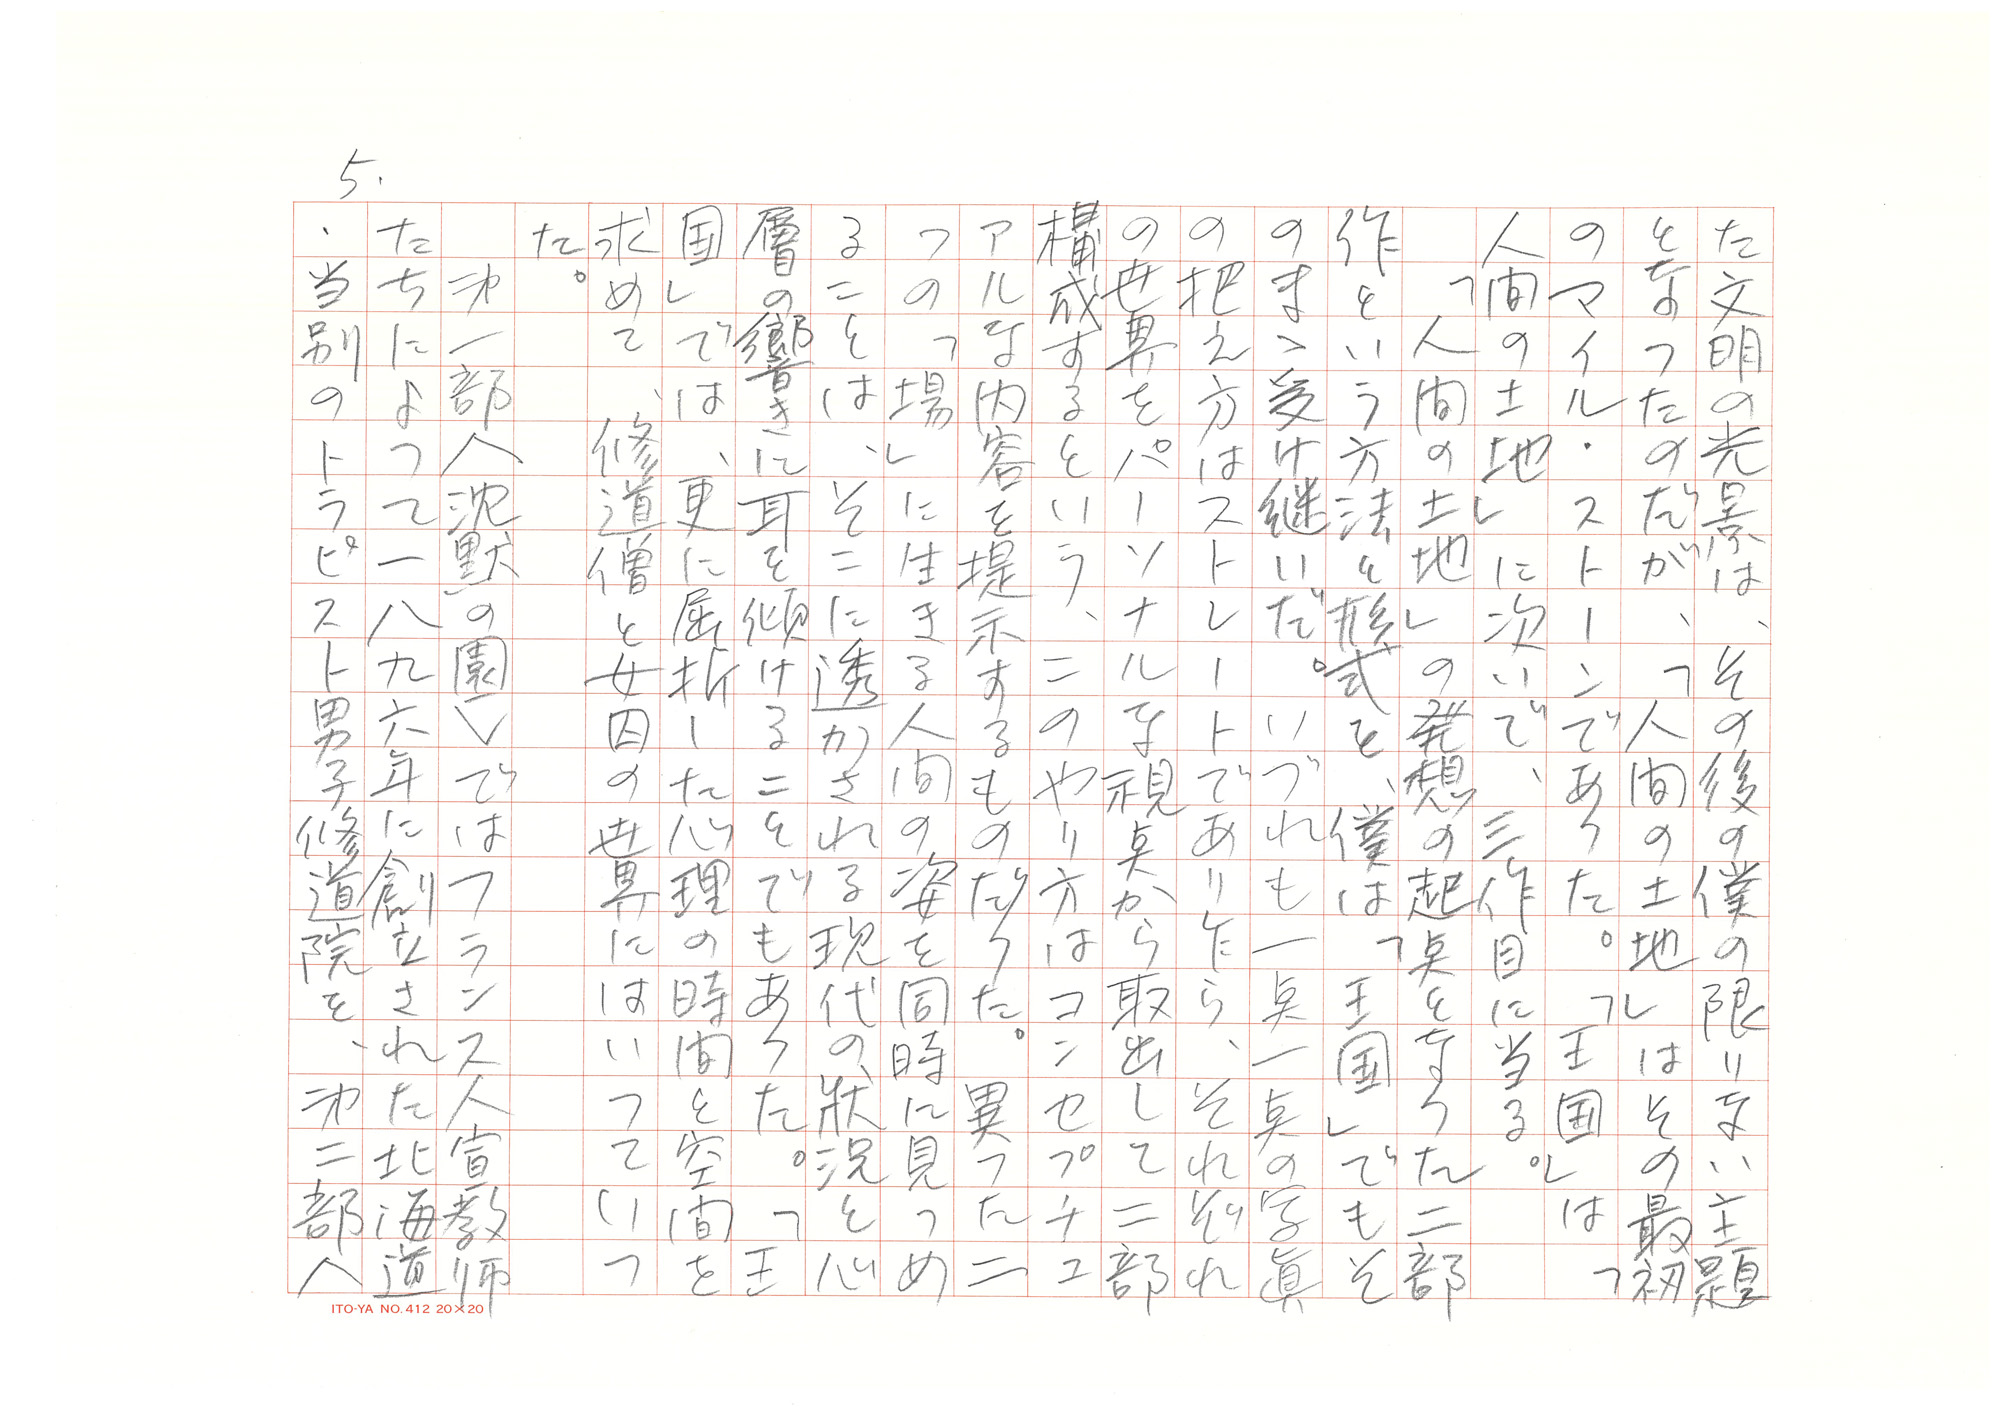 5.
た文明の光景は、その後の僕の限りない主題
となったのだが、「人間の土地」はその最初
のマイル・ストーンであった。「王国」は「
人間の土地」に次いで、三作目に当る。
「人間の土地」の発想の起点となった二部
作という方法と形式を、僕は「王国」でもそ
のまゝ受け継いだ。いづれも一点一点の写眞
の把え方はストレートであり乍ら、それぞれ
の世界をパーソナルな視点から取出して二部
構成するという、このやり方はコンセプチュ
アルな内容を提示するものだった。異った二
つの「場」に生きる人間の姿を同時に見つめ
ることは、そこに透かされる現代の状況を心
層の響きに耳を傾けることでもあった。「王
国」では、更に屈折した心理の時間と空間を
求めて、修道僧と女囚の世界にはいっていっ
た。
才一部〈沈黙の園〉ではフランス人宣教師
たちによって一八九六年に創立された北海道
・当別のトラピスト男子修道院を、才二部〈
ITO-YA NO.412 20×20